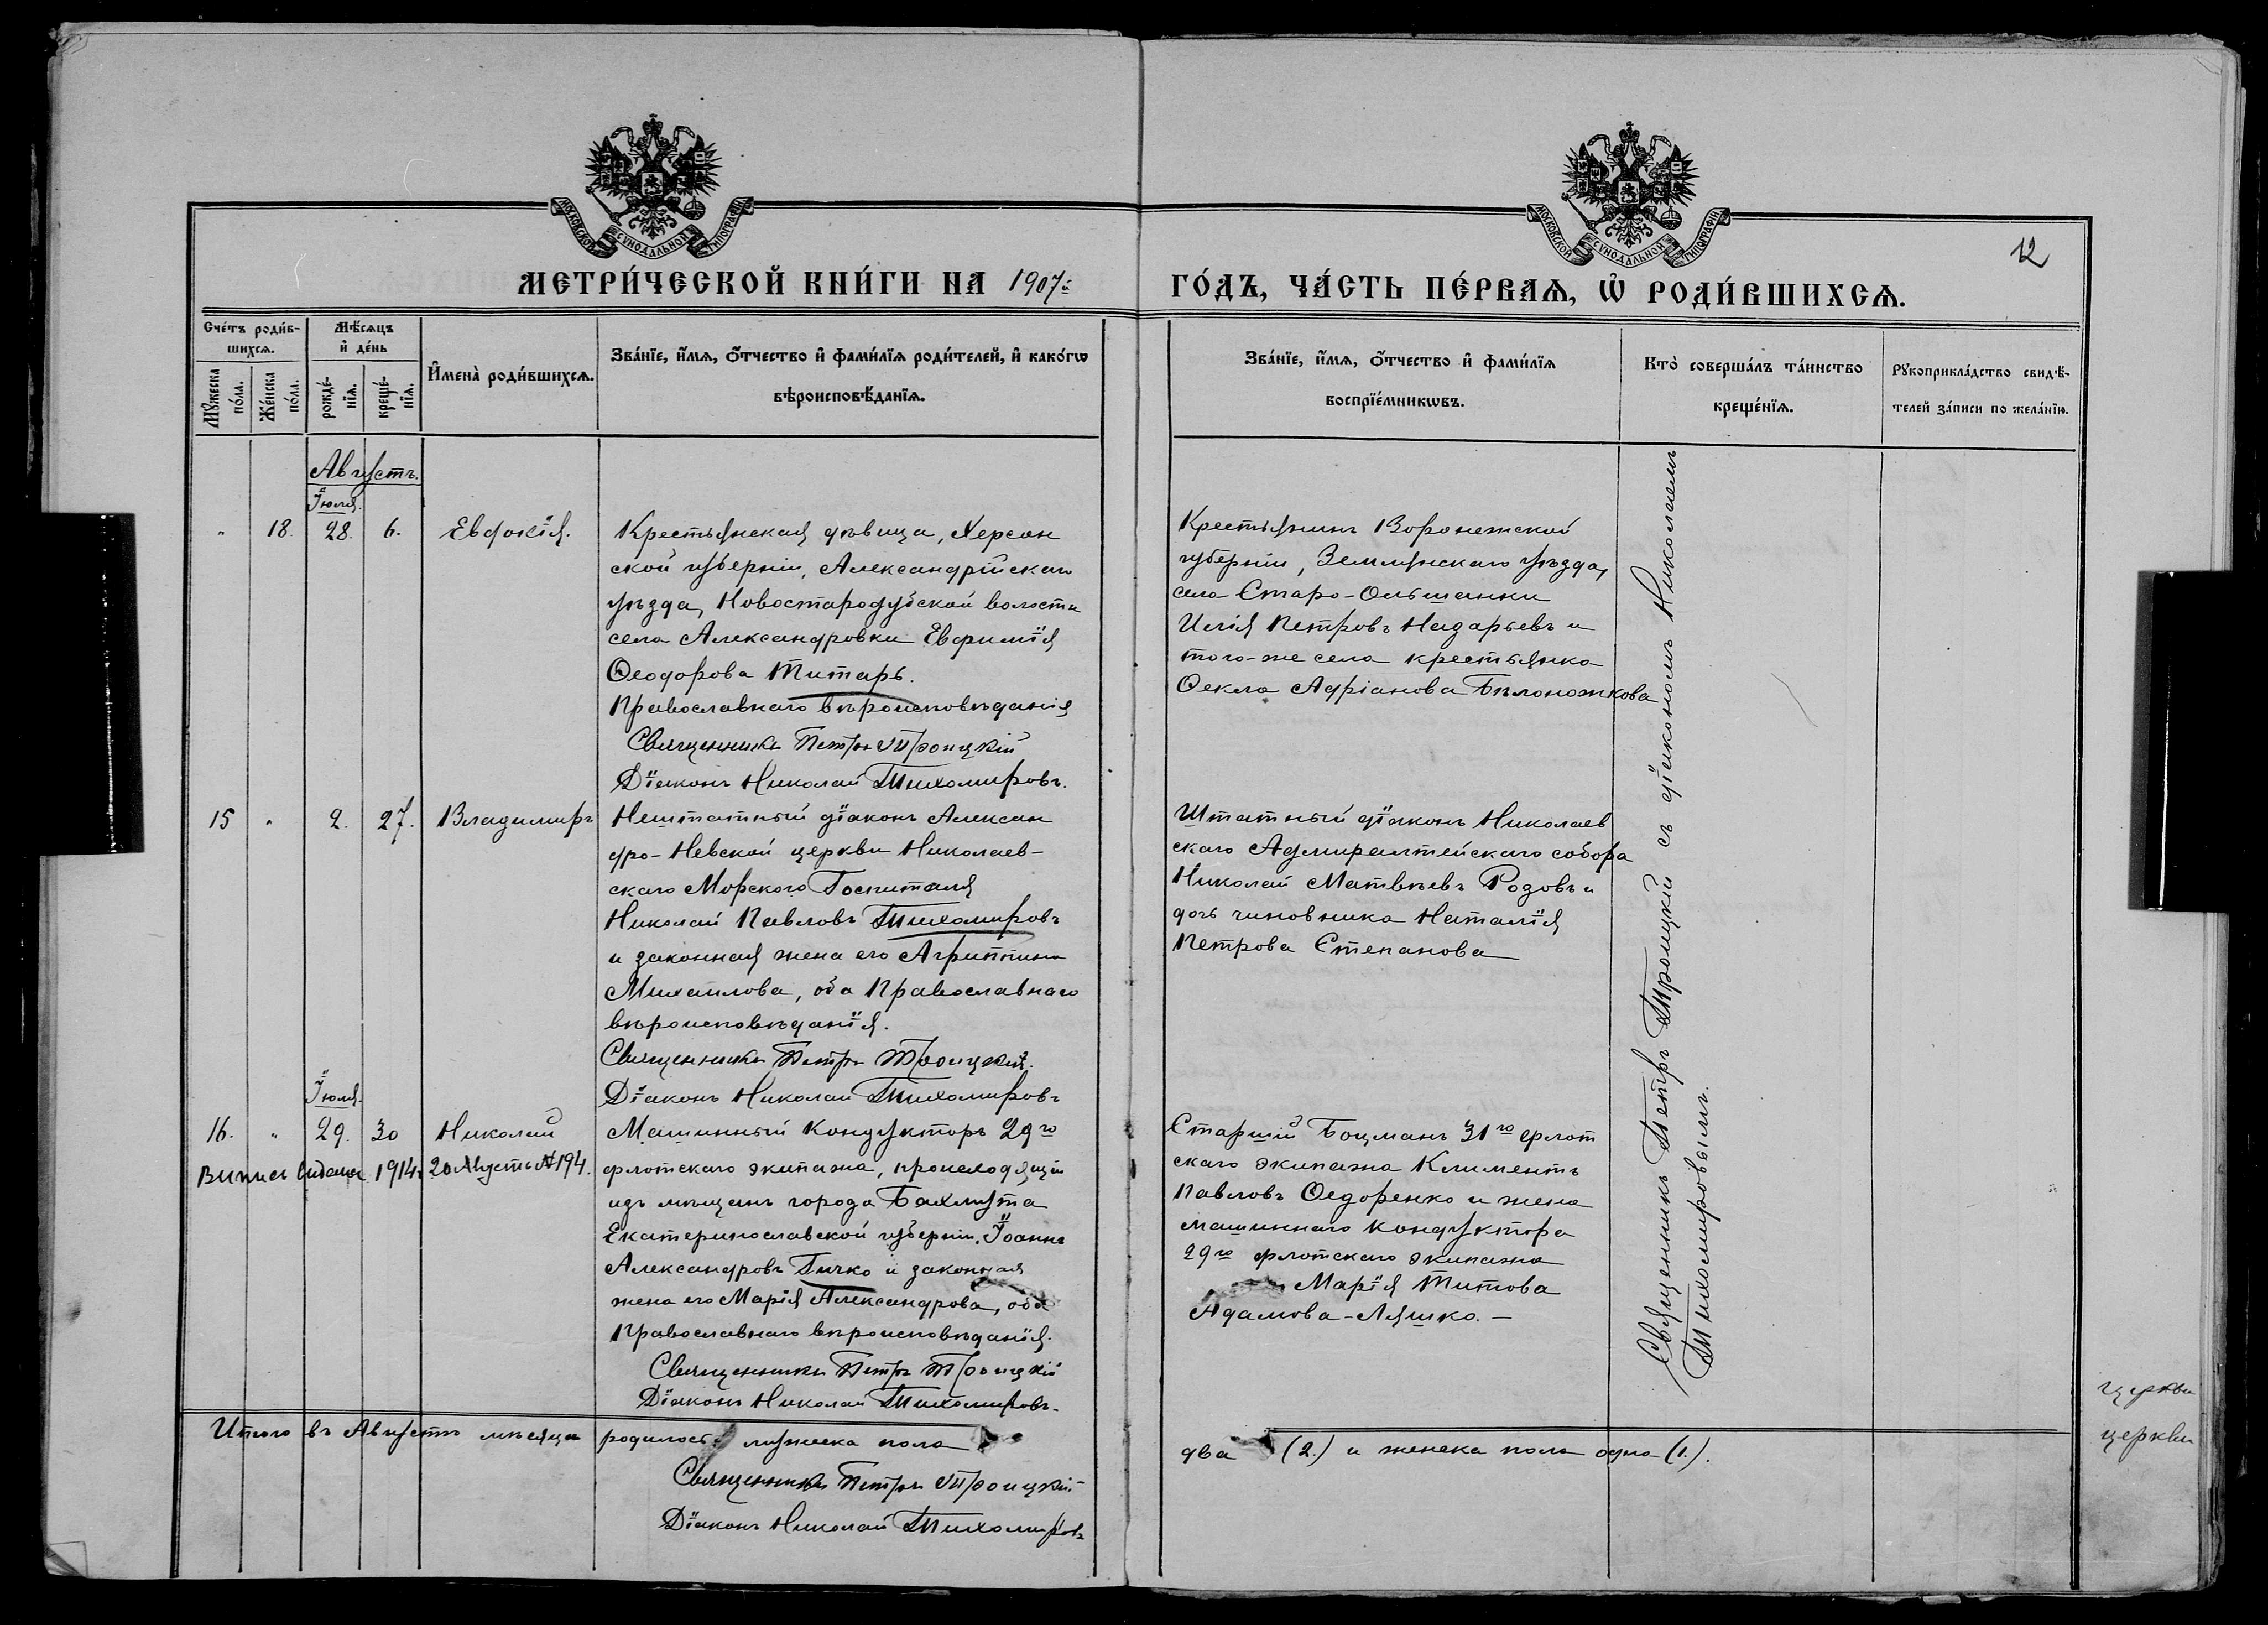 МОСКОВСКОЙ СѴНОДАЛЬНОЙ ТИПОГРАФІИ
МОСКОВСКОЙ СѴНОДАЛЬНОЙ ТИПОГРАФІИ
12
МЕТРИ́ЧЕСКОЙ КНИ́ГИ НА 1907й ГО́ДЪ, ЧА́СТЬ ПЕ́РВАѦ, Ѡ҆ РОДИ́ВШИХСѦ.
Сче́тъ роди́в-
шихсѧ.
Мѣ́сѧцъ
и҆ де́нь
Мꙋ́жеска по́ла.
Же́нска по́ла.
рожде́-нїѧ.
креще́-нїѧ.
И҆мена̀ роди́вшихсѧ.
Зва́нїе, и҆́мѧ, ѻ҆́тчество и҆ фами́лїѧ роди́телей, и҆ како́гѡ
вѣроисповѣ́данїѧ.
Зва́нїе, и҆́мѧ, ѻ҆́тчество и҆ фами́лїѧ
воспрїе́мникѡвъ.
Кто̀ соверша́лъ та́инство
креще́нїѧ.
Рꙋкоприкла́дство свидѣ́-
телей за́писи по жела́нїю.
Августъ.
Іюля.
" 18. 28. 6. Евдокія.
Крестьянская дѣвица, Херсон
ской губерніи, Александрійскаго
уѣзда, Новостародубской волости
села Александровки Евфимія
Ѳеодорова Титарь.
Православнаго вѣроисповѣданія
Священникъ Петръ Троицкій
Діаконъ Николай Тихомировъ.
Крестьянинъ Воронежской
губерніи, Землянскаго уѣзда,
села Старо-Ольшанки
Илія Петровъ Назарьевъ и
того-же села крестьянка
Ѳекла Адріанова Бѣлоножкова
15 " 2. 27. Владимиръ
Нештатный діаконъ Алексан
дро-Невской церкви Николаев-
скаго Морского Госпиталя
Николай Павловъ Тихомировъ
и законная жена его Агриппина
Михаилова, оба Православнаго
вѣроисповѣданія.
Священникъ Петръ Троицкій.
Діаконъ Николай Тихомировъ
Штатный діаконъ Николаев
скаго Адмиралтейскаго собора
Николай Матвѣевъ Розовъ и
дочь чиновника Наталія
Петрова Степанова
Іюля.
16. " 29. 30 Николай
Выпись выдана 1914г. 20 Августа №194.
Машинный кондукторъ 29го
флотскаго экипажа, происходящій
изъ мѣщанъ города Бахмута
Екатеринославской губерніи, Іоаннъ
Александровъ Гичко и законная
жена его Марія Александрова, оба
Православнаго вѣроисповѣданія.
Священникъ Петръ Троицкій
Діаконъ Николай Тихомировъ.
Старшій Боцманъ 31го флот
скаго экипажа Климентъ
Павловъ Ѳедоренко и жена
машиннаго кондуктора
29го флотскаго экипажа
Марія Титова
Адамова-Ляшко.-
Священникъ Петръ Троицкій съ діакономъ Николаемъ
Тихомировымъ.
Итого въ Августѣ мѣсяцѣ родилось мужеска пола
два (2.) и женска пола одна (1.).
Священникъ Петръ Троицкій
Діаконъ Николай Тихомировъ
церкви
церкви